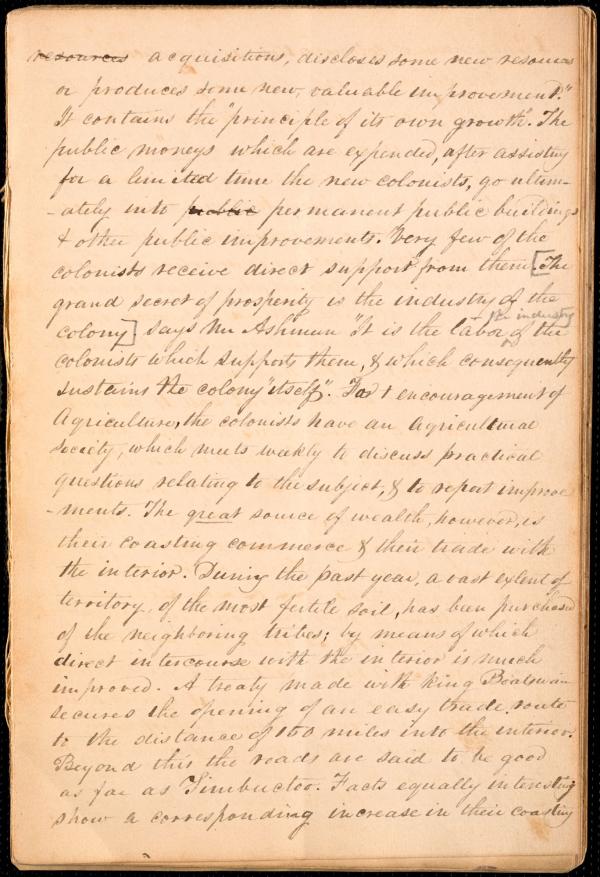 resources acquisitions, discloses some new resources
or produces some new, valuable improvement."
It contains the "principle of its own growth. The
public moneys which are expended, after assisting
for a limited time the new colonists, go ultim-
-ately into public permanent public buildings
& other public improvements. Very few of the
colonists receive direct support from them. [The
grand secret of prosperity is the industry of the
colony] says Mr Ashmun "It is the labor of the
the industry
colonists which supports them, & which consequently
sustains the colony "itself". For encouragement of
Agriculture, the colonists have an Agricultural
society, which meets weekly to discuss practical
questions relating to the subject, & to report improve
-ments. The great source of wealth, however, is
their coasting commerce & their trade with
the interior. During the past year, a vast extent of
territory, of the most fertile soil, has been purchased
of the neighboring tribes; by means of which
direct intercourse with the interior is much
improved. A treaty made with king Boatswain
secures the opening of an easy trade route
to the distance of 150 miles into the interior.
Beyond this the roads are said to be good
as far as Timbuctoo. Facts equally interesting
show a corresponding increase in their coasting